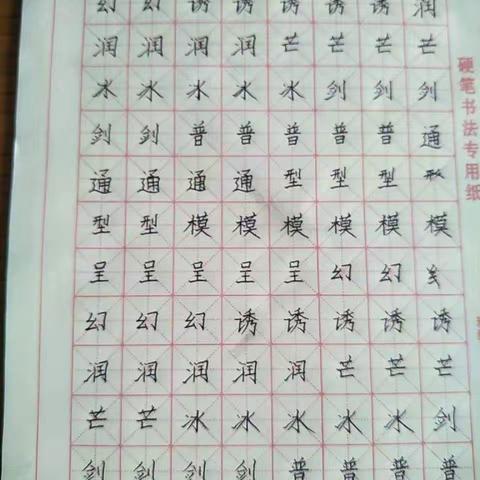 幻幻诱诱诱诱诱润
润润润润芒芒芒芒
冰冰冰冰冰剑剑剑
剑剑普普普普普通
通通通通型型型
型型模模模模模模
呈呈呈呈呈幻幻
幻幻幻诱诱诱诱诱
润润润润润芒芒芒
芒芒冰冰冰冰冰剑
剑剑剑剑普普普普
硬笔书法专用纸